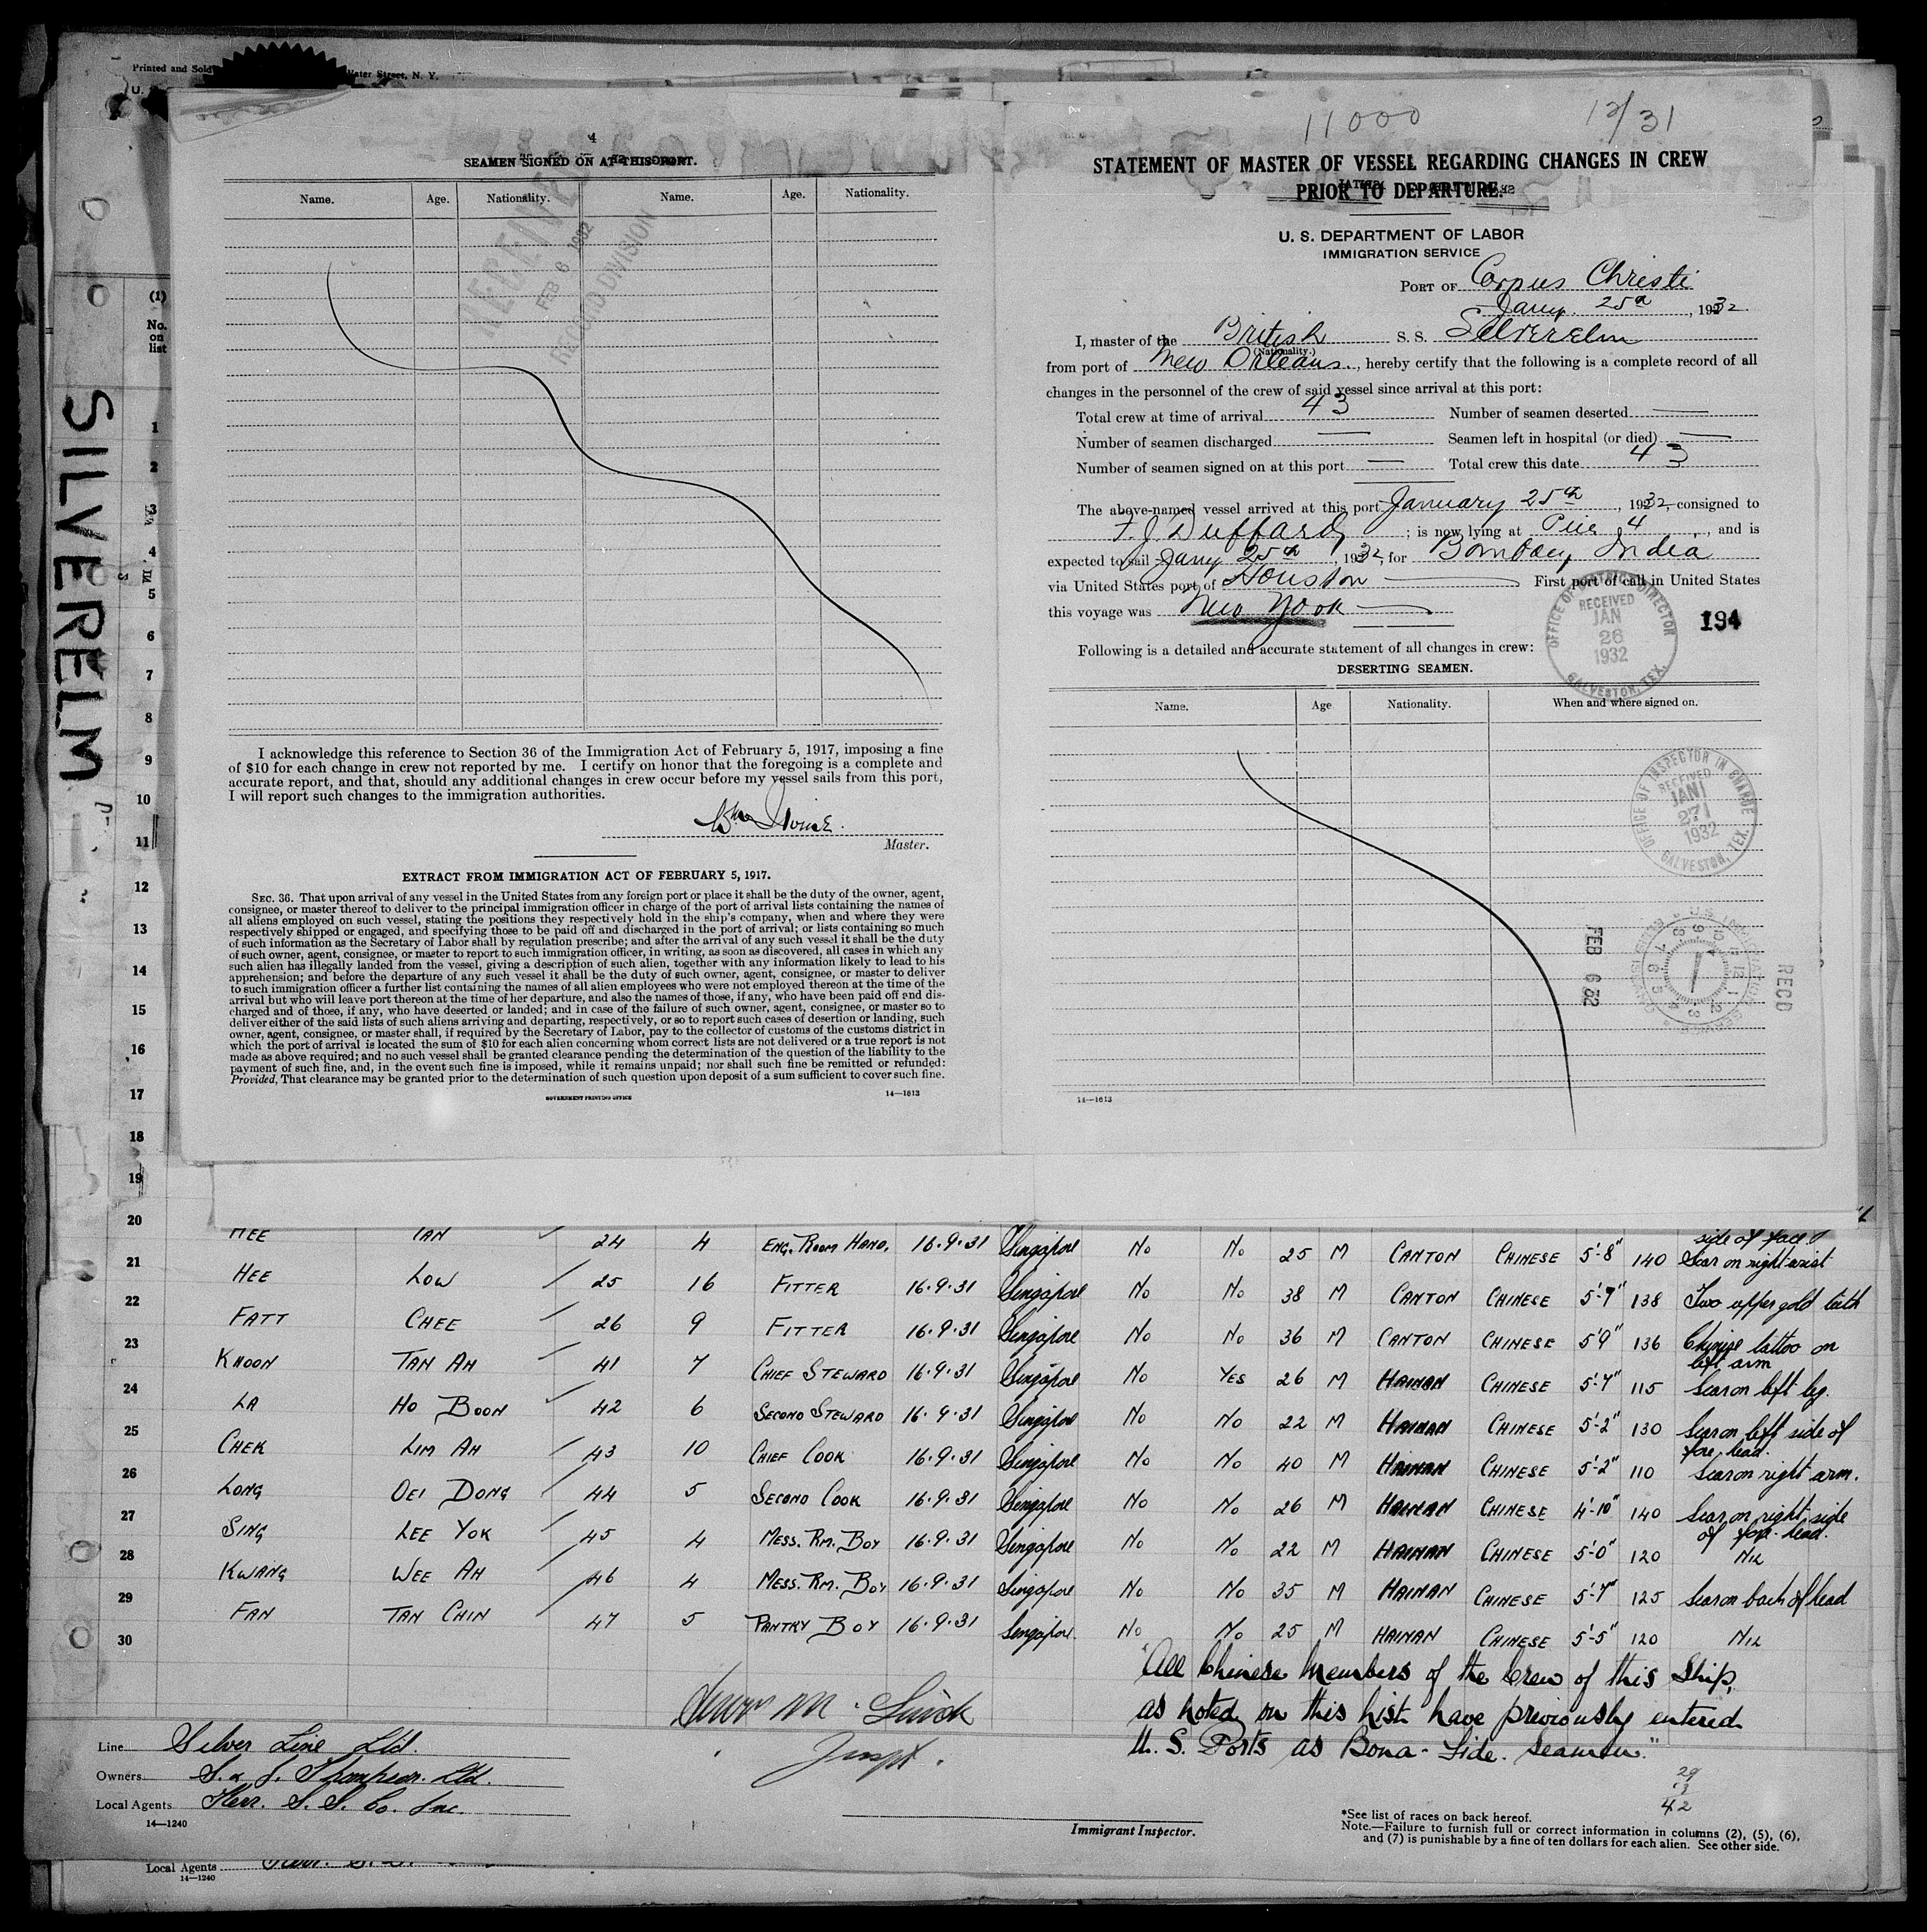 Printed and Sold
Water Street, N. Y.
U.
(1)
No.
on
list
SILVERELM
4
SEAMEN SIGNED ON AT THIS PORT.
Name. Age. Nationality. Name. Age. Nationality.
RECEIVED
FEB 6 1932
RECORD DIVISION
I acknowledge this reference to Section 36 of the Immigration Act of February 5, 1917, imposing a fine
of $10 for each change in crew not reported by me. I certify on honor that the foregoing is a complete and
accurate report, and that, should any additional changes in crew occur before my vessel sails from this port,
I will report such changes to the immigration authorities.
Master.
EXTRACT FROM IMMIGRATION ACT OF FEBRUARY 5, 1917.
SEC. 36. That upon arrival of any vessel in the United States from any foreign port or place it shall be the duty of the owner, agent,
consignee, or master thereof to deliver to the principal immigration officer in charge of the port of arrival lists containing the names of
all aliens employed on such vessel, stating the positions they respectively hold in the ship's company, when and where they were
respectively shipped or engaged, and specifying those to be paid off and discharged in the port of arrival; or lists containing so much
of such information as the Secretary of Labor shall by regulation prescribe; and after the arrival of any such vessel it shall be the duty
of such owner, agent, consignee, or master to report to such immigration officer, in writing, as soon as discovered, all cases in which any
such alien has illegally landed from the vessel, giving a description of such alien, together with any information likely to lead to his
apprehension; and before the departure of any such vessel it shall be the duty of such owner, agent, consignee, or master to deliver
to such immigration officer a further list containing the names of all alien employees who were not employed thereon at the time of the
arrival but who will leave port thereon at the time of her departure, and also the names of those, if any, who have been paid off and dis-
charged and of those, if any, who have deserted or landed; and in case of the failure of such owner, agent, consignee, or master so to
deliver either of the said lists of such aliens arriving and departing, respectively, or so to report such cases of desertion or landing, such
owner, agent, consignee, or master shall, if required by the Secretary of Labor, pay to the collector of customs of the customs district in
which the port of arrival is located the sum of $10 for each alien concerning whom correct lists are not delivered or a true report is not
made as above required; and no such vessel shall be granted clearance pending the determination of the question of the liability to the
payment of such fine, and, in the event such fine is imposed, while it remains unpaid; nor shall such fine be remitted or refunded:
Provided, That clearance may be granted prior to the determination of such question upon deposit of a sum sufficient to cover such fine.
GOVERNMENT PRINTING OFFICE 14—1613
11000 12/31
STATEMENT OF MASTER OF VESSEL REGARDING CHANGES IN CREW
PRIOR TO DEPARTURE.
U. S. DEPARTMENT OF LABOR
IMMIGRATION SERVICE
PORT OF Corpus Christi
Jany. 25th, 1932
I, master of the British S. S. Silverelm
(Nationality.)
from port of New Orleans, hereby certify that the following is a complete record of all
changes in the personnel of the crew of said vessel since arrival at this port:
Total crew at time of arrival 43 Number of seamen deserted —
Number of seamen discharged — Seamen left in hospital (or died) —
Number of seamen signed on at this port — Total crew this date 43
The above-named vessel arrived at this port January 25th, 1932, consigned to
F. J. Duffard; is now lying at Pier 4, and is
expected to sail Jany 25th, 1932, for Bombay, India
via United States port of Houston — First port of call in United States
this voyage was New York —
OFFICE OF DISTRICT DIRECTOR
RECEIVED
JAN
26
1932
GALVESTON, TEX.
194
Following is a detailed and accurate statement of all changes in crew:
DESERTING SEAMEN.
Name. Age Nationality. When and where signed on.
OFFICE OF INSPECTOR IN CHARGE
RECEIVED
JAN
27
1932
GALVESTON, TEX.
FEB 6 32
RECD
14—1613
1
2
3
4
5
6
7
8
9
10
11
12
13
14
15
16
17
18
19
20
side of face
HEE TAN 24 4 ENG. ROOM HAND. 16.9.31 Singapore No No 25 M CANTON CHINESE 5'-8" 140 Scar on right wrist
21 HEE LOW 25 16 FITTER 16.9.31 Singapore No No 38 M CANTON CHINESE 5'-7" 138 Two upper gold teeth
22 FATT CHEE 26 9 FITTER 16.9.31 Singapore No No 36 M CANTON CHINESE 5'9" 136 Chinese tattoo on left arm
23 KHOON TAN AH 41 7 CHIEF STEWARD 16.9.31 Singapore No YES 26 M HAINAN CHINESE 5'-4" 115 Scar on left leg.
24 LA HO BOON 42 6 SECOND STEWARD 16.9.31 Singapore No No 22 M HAINAN CHINESE 5'-2" 130 Scar on left side of fore-head.
25 CHEK LIM AH 43 10 CHIEF COOK 16.9.31 Singapore No No 40 M HAINAN CHINESE 5'-2" 110 Scar on right arm.
26 LONG OEI DONG 44 5 SECOND COOK 16.9.31 Singapore No No 26 M HAINAN CHINESE 4'-10" 140 Scar on right side of fore-head.
27 SING LEE YOK 45 4 MESS. RM. BOY 16.9.31 Singapore No No 22 M HAINAN CHINESE 5'-0" 120 NIL
28 KWANG WEE AH 46 4 MESS. RM. BOY 16.9.31 Singapore No No 35 M HAINAN CHINESE 5'-4" 125 Scar on back of head
29 FAN TAN CHIN 47 5 PANTRY BOY 16.9.31 Singapore. No No 25 M HAINAN CHINESE 5'-5" 120 NIL
30
"All Chinese Members of the Crew of this Ship,
as noted on this list have previously entered
U. S. Ports as Bona-fide. Seamen."
29
13
42
Line Silver Line Ltd.
Owners S. & J. Thompson. Ltd.
Local Agents Kerr. S. S. Co. Inc.
14—1240
Immigrant Inspector.
*See list of races on back hereof.
Note.—Failure to furnish full or correct information in columns (2), (5), (6),
and (7) is punishable by a fine of ten dollars for each alien. See other side.
Local Agents
14—1240